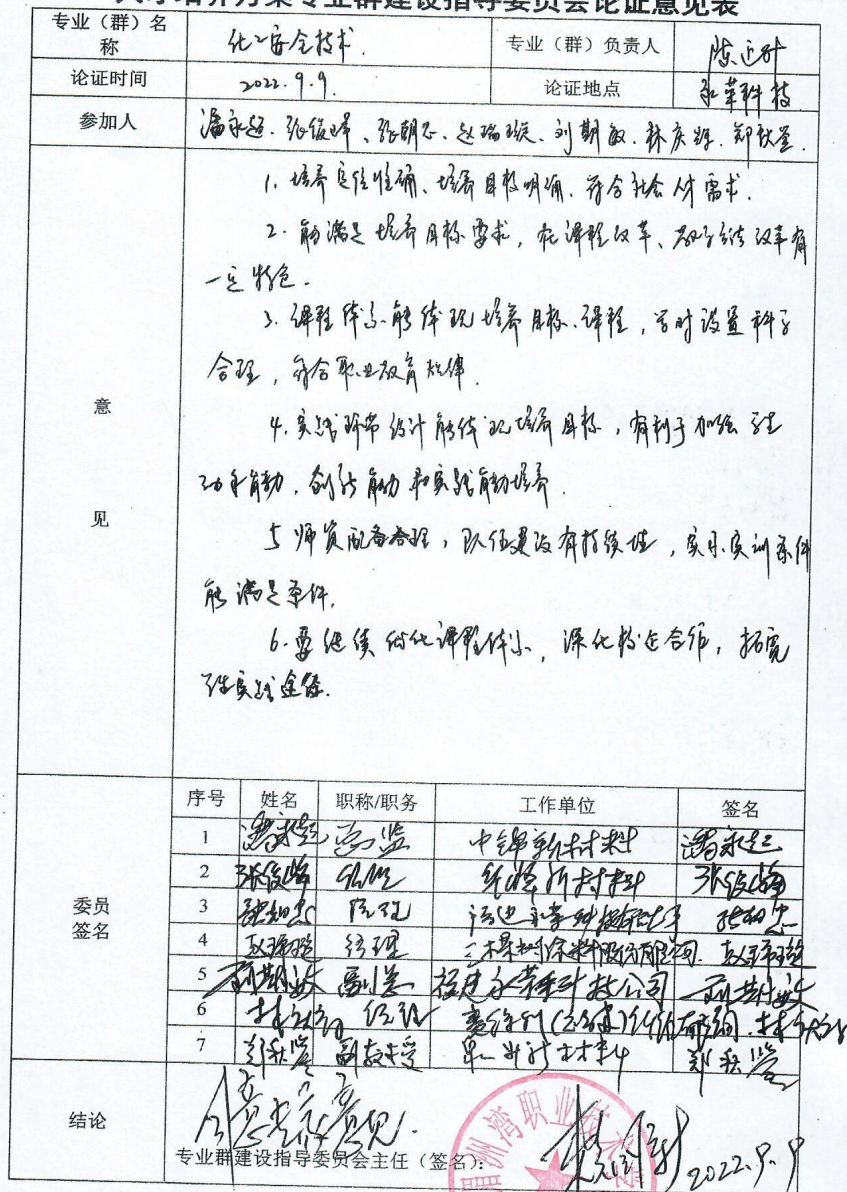 人才培养方案专业群建设指导委员会论证意见表
专业（群）名称 化工安全技术 专业（群）负责人
论证时间 2022.9.9. 论证地点 永荣科技
参加人 潘永超、张俊峰、张朝忠、赵瑞璇、刘期敏、林庆辉、郑秋莹
意见
1. 培养定位准确、培养目标明确、符合社会人才需求.
2. 能满足培养目标要求，在课程改革、教学方法改革有
一定特色.
3. 课程体系能体现培养目标、课程，学时设置科学
合理，符合职业教育规律.
4. 实践环节设计能体现培养目标，有利于加强学生
动手能力，创新能力和实践能力培养.
5 师资配备合理，队伍建设有持续性，实习实训条件
能满足条件.
6. 要继续优化课程体系，深化校企合作，拓宽
实践途径.
委员签名
序号 姓名 职称/职务 工作单位 签名
1 潘永超 中锦新材料 潘永超
2 张俊峰 新材料 张俊峰
3
4 经理 三棵树涂料股份有限公司
5 刘期敏 副总 福建永荣科技公司 刘期敏
6 经理
7 郑秋莹 副教授 新材料 郑秋莹
结论
专业群建设指导委员会主任（签名）： 2022.9.9
湄洲湾职业技术学